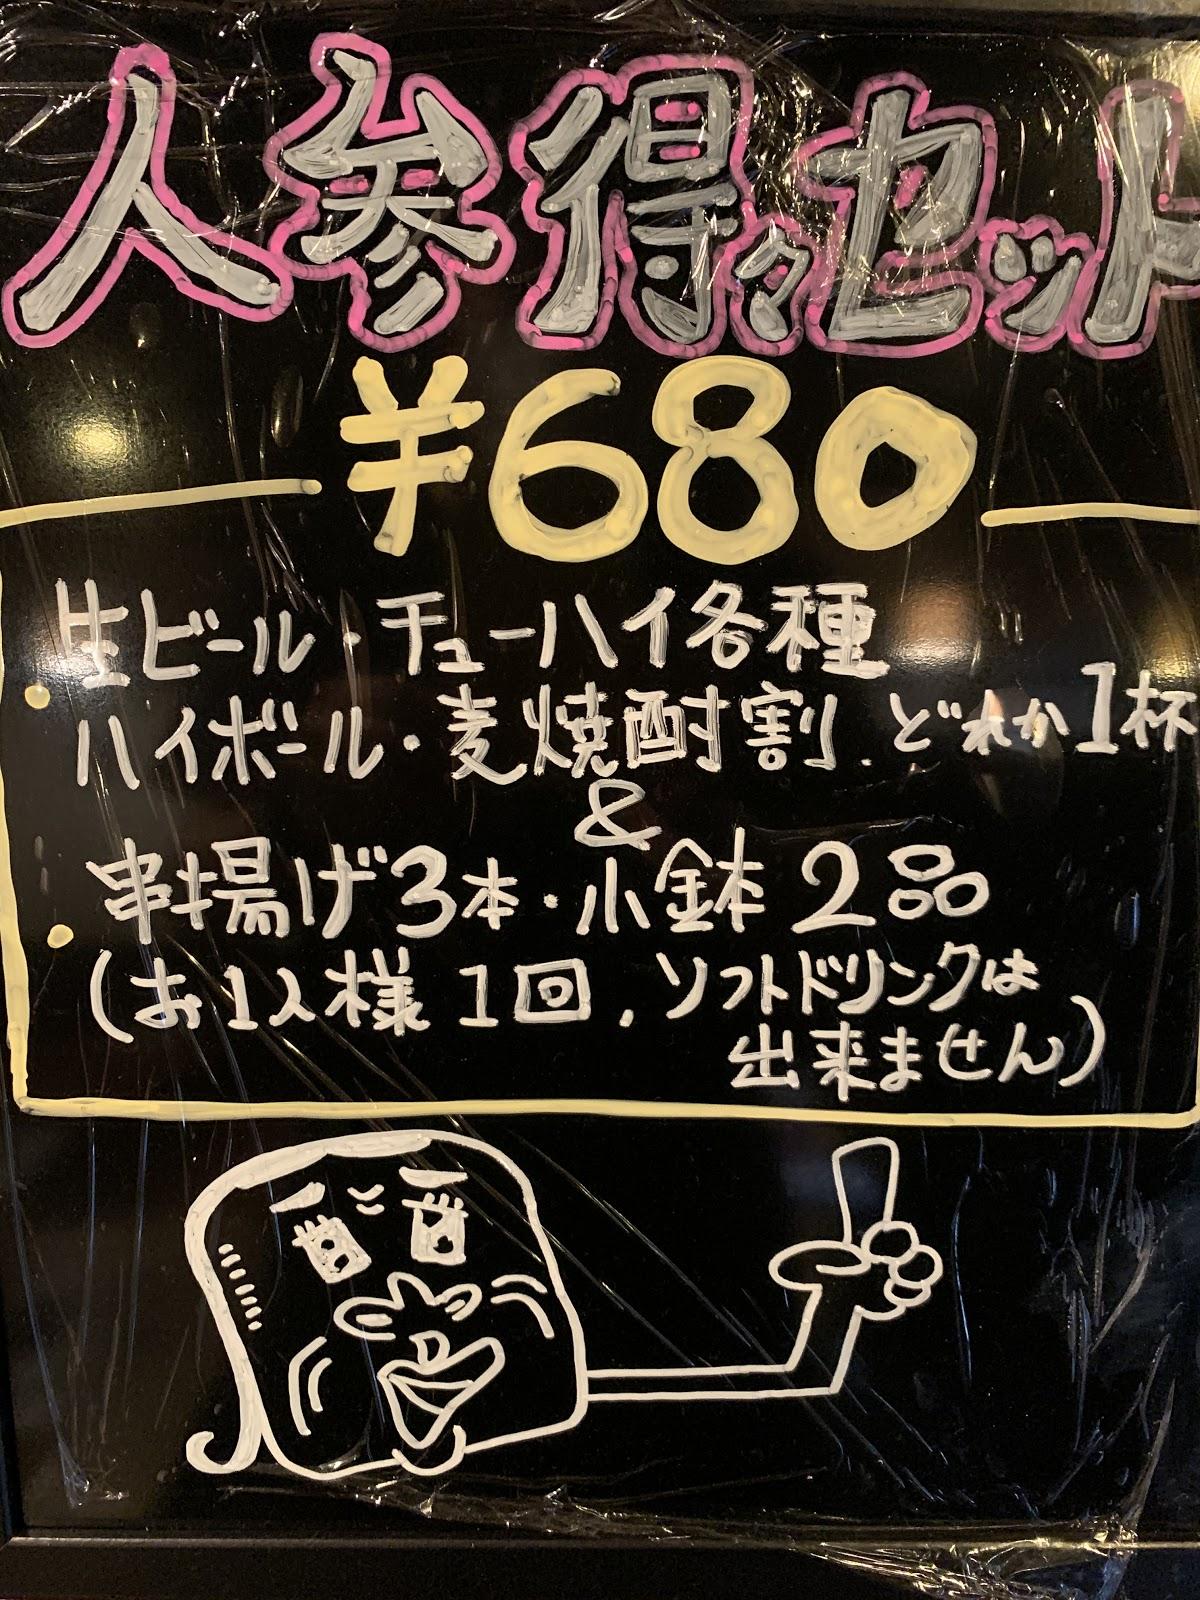 人参得々セット
¥680
生ビール・チューハイ各種
ハイボール・麦焼酎割.どれか1杯
&
串揚げ3本・小鉢2品
(お1人様1回.ソフトドリンクは
出来ません)